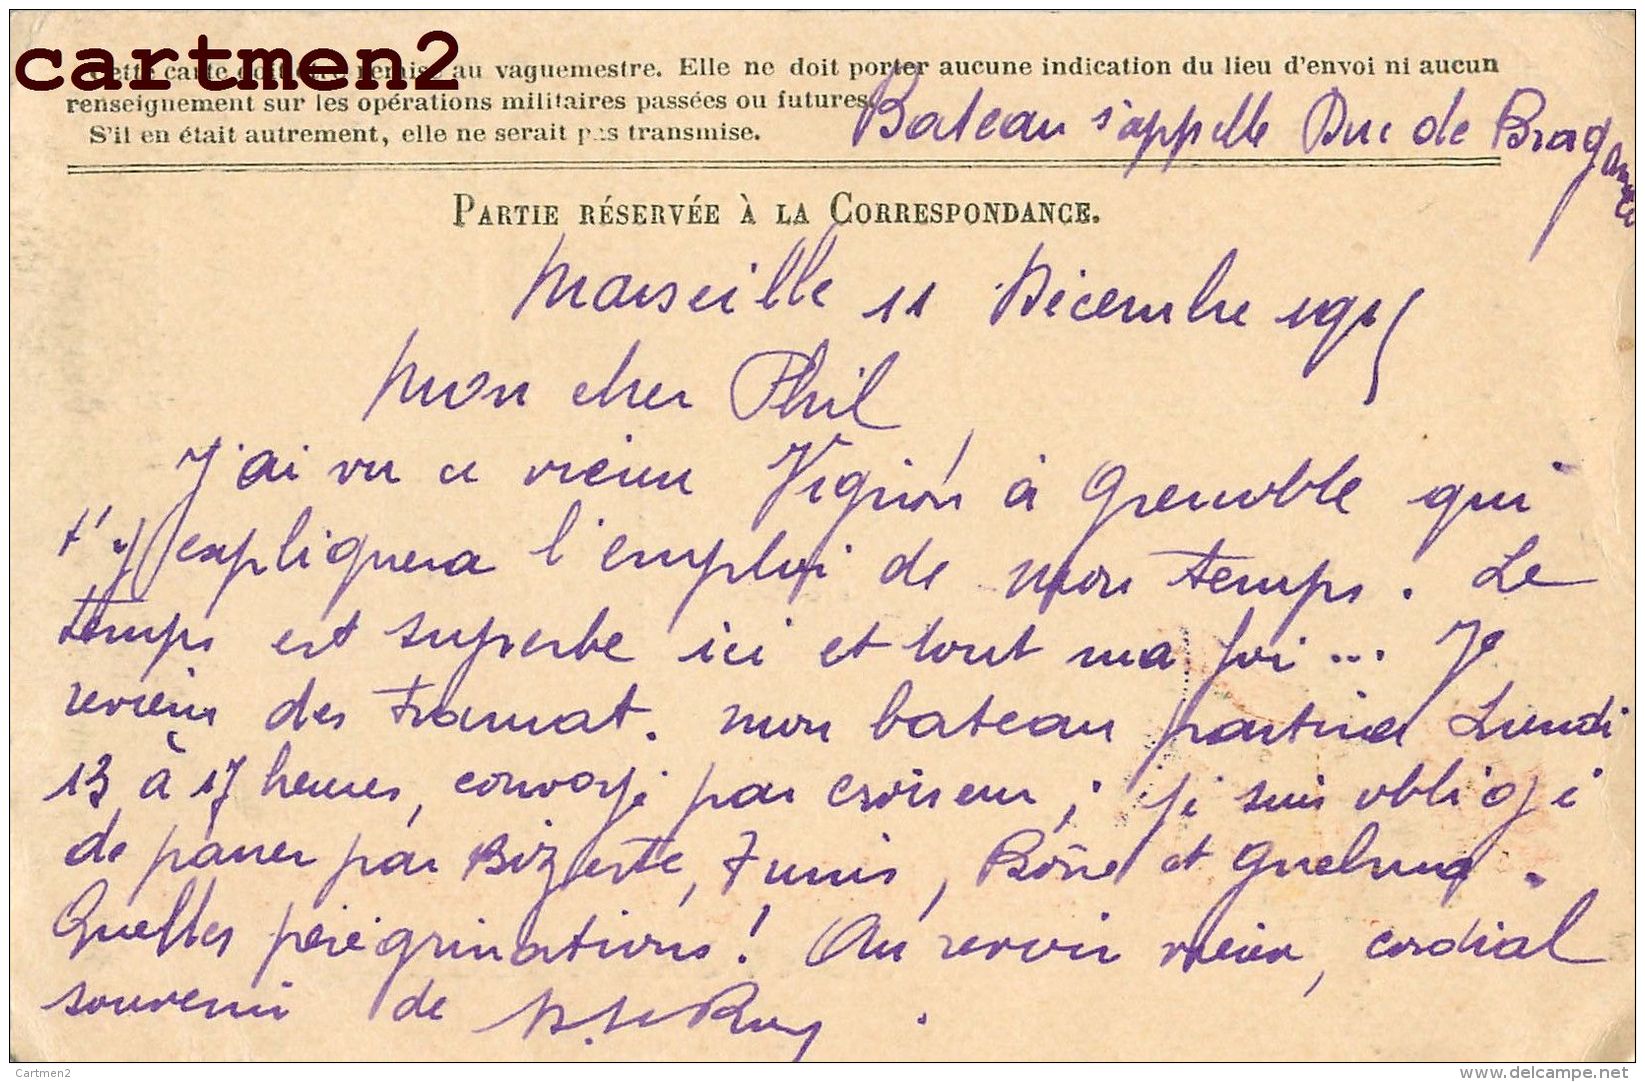 cartmen2
Cette carte doit être remise au vaguemestre. Elle ne doit porter aucune indication du lieu d'envoi ni aucun
renseignement sur les opérations militaires passées ou futures.
S'il en était autrement, elle ne serait pas transmise.
Bateau s'appelle Duc de Bragance
PARTIE RÉSERVÉE À LA CORRESPONDANCE.
Marseille 11 Décembre 1915
Mon cher Phil
J'ai vu ce vieux Vignon à Grenoble qui
t'expliquera l'emploi de mon temps. Le
temps est superbe ici et tout ma foi... Je
reviens des tramat. Mon bateau partira Lundi
13 à 17 heures, convoyé par croiseur ; je suis obligé
de passer par Bizerte, Tunis, Bône et Guelma.
Quelles pérégrinations ! Au revoir vieux, cordial
souvenir de
Cartmen2
www.delcampe.net